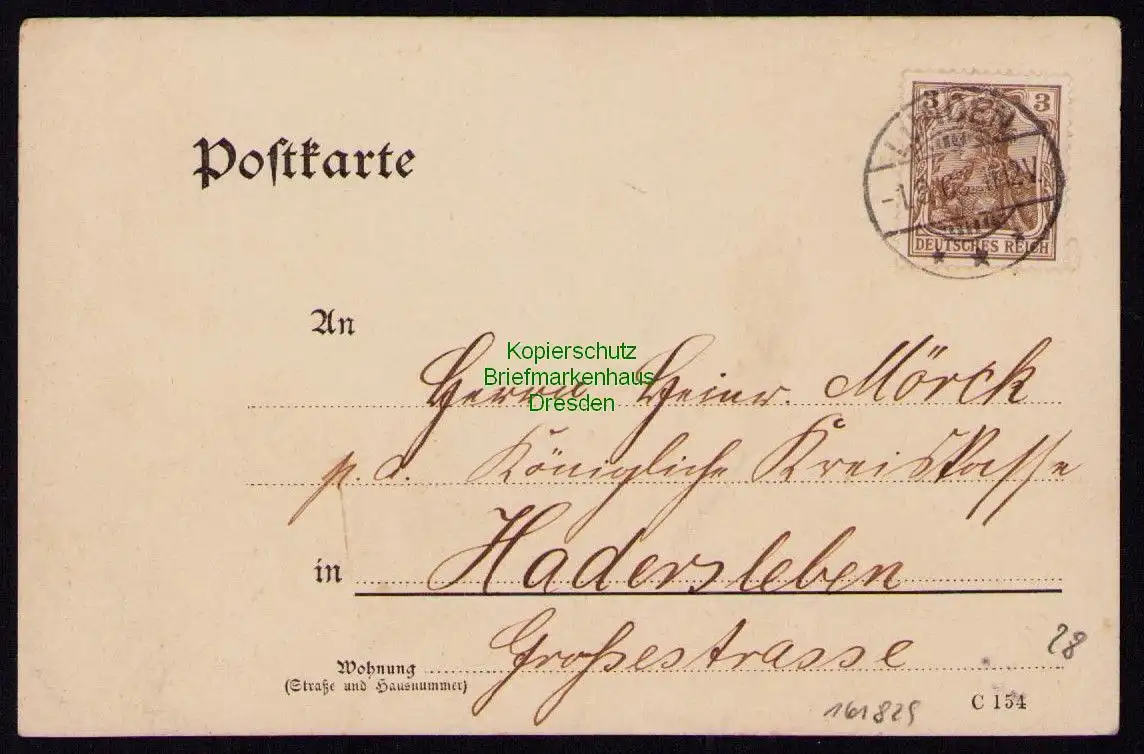 3 3
DEUTSCHES REICH
Poſtkarte
An
Kopierschutz
Briefmarkenhaus
Dresden
Herrn Heinr. Mörck
Königliche Kreiskasse
in Hadersleben
Großestrasse
Wohnung
(Straße und Hausnummer)
28
161829
C 154